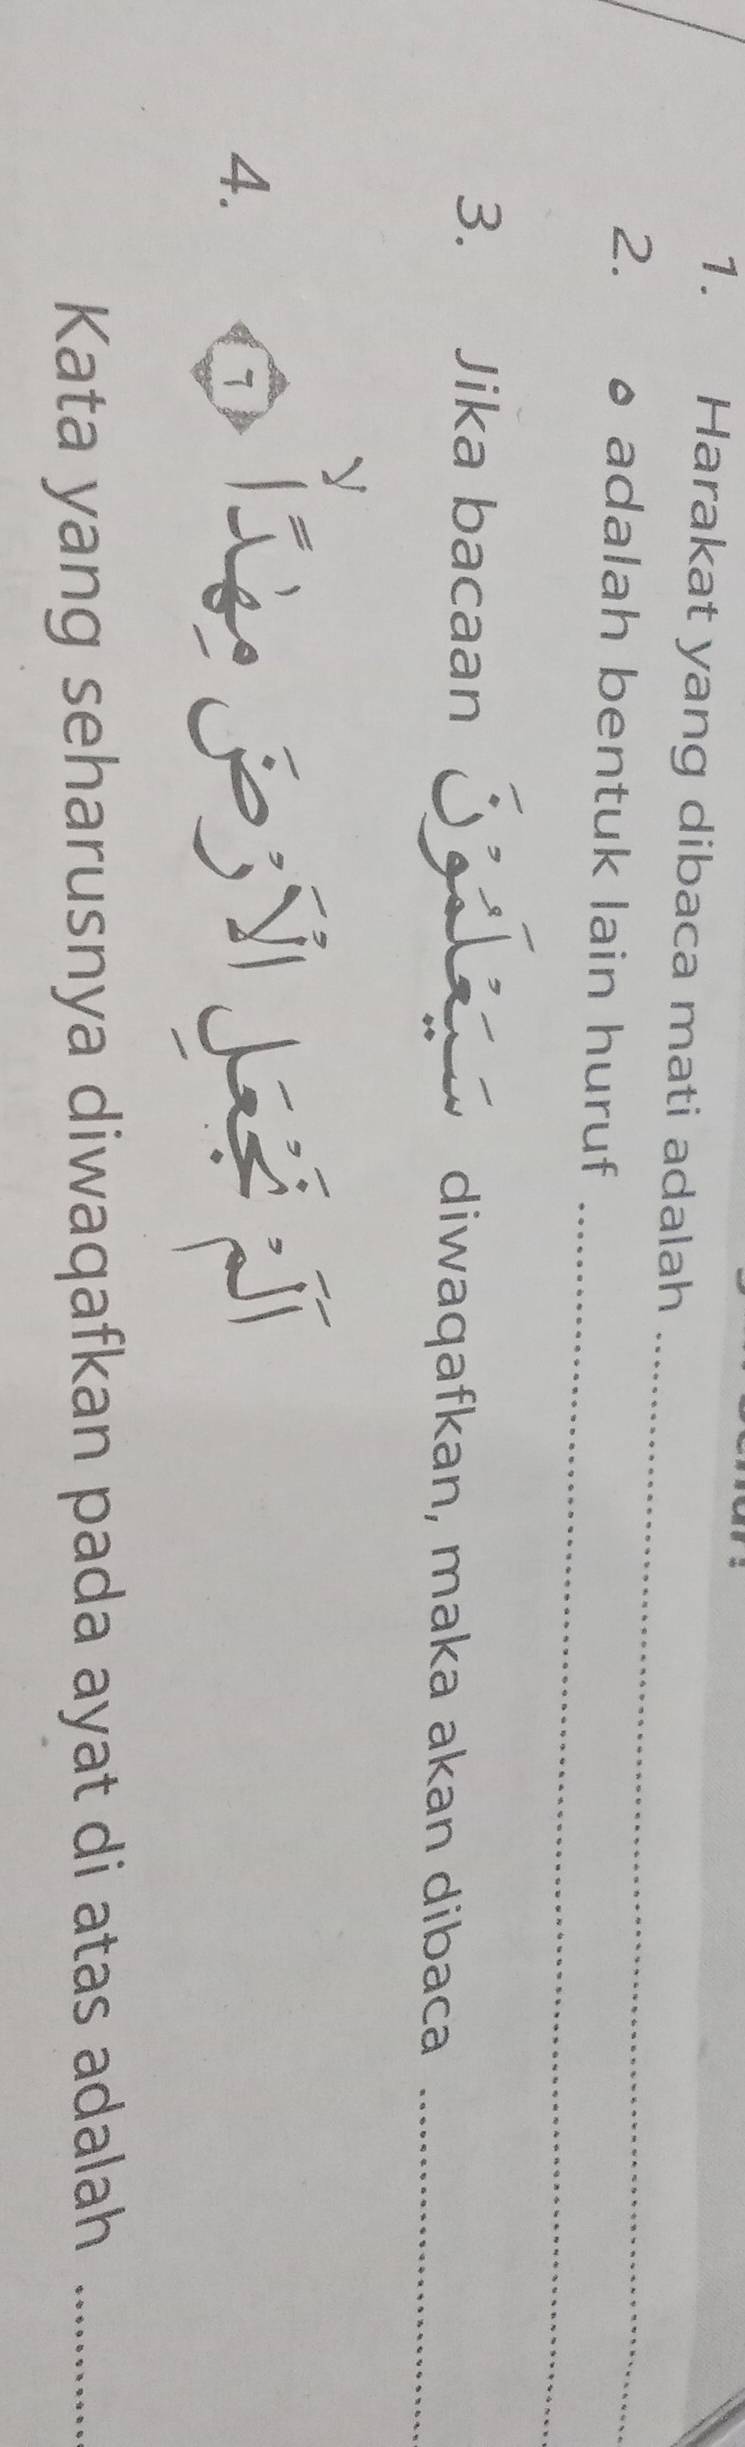 1. Harakat yang dibaca mati adalah ........................
2. ه adalah bentuk lain huruf ........................
3. Jika bacaan سَيَعْلَمُوْنَ diwaqafkan, maka akan dibaca ........................
4. اَلَمْ نَجْعَلِ الْاَرْضَ مِهٰدًاۙ ٦
Kata yang seharusnya diwaqafkan pada ayat di atas adalah ............